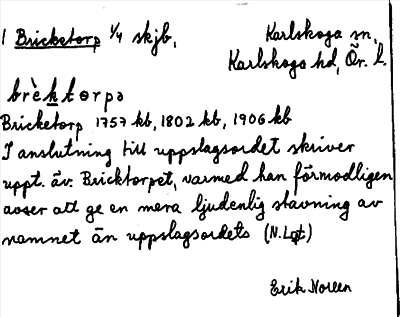 1 Bricketorp 1/4 skjb, Karlskoga sn,
Karlskoga hd, Ör. l.
brèktorpə
Bricketorp 1757 kb, 1802 kb, 1906 kb
I anslutning till uppslagsordet skriver
uppt. äv. Bricktorpet, varmed han förmodligen
avser att ge en mera ljudenlig stavning av
namnet än uppslagsordets (N.Lqt)
Erik Noreen